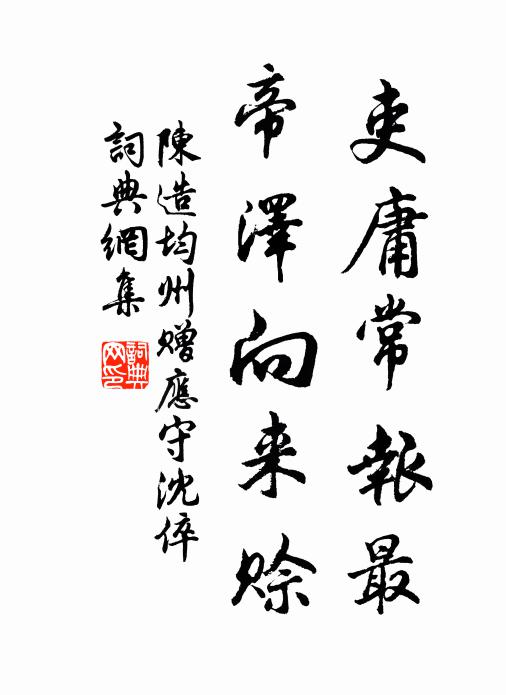 吏庸常報最
帝澤向来賒
陳造均州贈應守沈倅
詞典網集
詞典
网印